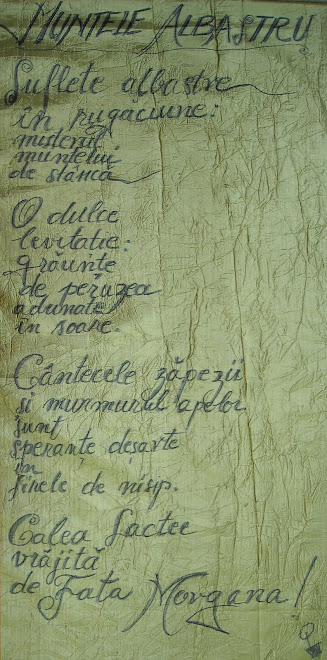 MUNTELE ALBASTRU
Suflete albastre
în rugăciune:
misterul
muntelui
de stâncă
O dulce
levitatie:
grăunte
de peruzea
adunate
in soare.
Cântecele zăpezii
si murmurul apelor
sunt
sperante deșarte
in
firele de nisip.
Calea Lactee
vrăjită
de Fata Morgana!